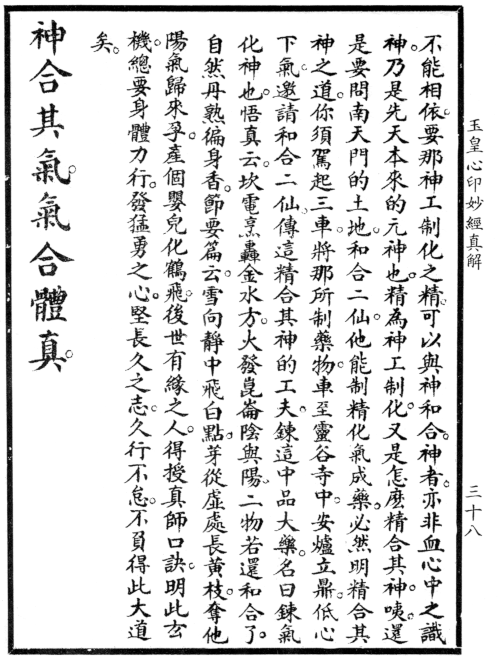 玉皇心印妙經真解
三十八
不能相依。要那神工制化之精。可以與神和合。神者。亦非血心中之識
神。乃是先天本來的元神也。精為神工制化。又是怎麼精合其神。咦。還
是要問南天門的土地。和合二仙。他能制精化氣成藥。必然明精合其
神之道。你須駕起三車。將那所制藥物。車至靈谷寺中。安爐立鼎。低心
下氣。邀請和合二仙。傳這精合其神的工夫。鍊這中品大藥。名曰鍊氣
化神也。悟真云。坎電烹轟金水方。火發崑崙陰與陽。二物若還和合了。
自然丹熟徧身香。節要篇云。雪向靜中飛白點。芽從虛處長黃枝。奪他
陽氣歸來孕。產個嬰兒化鶴飛。後世有緣之人。得授真師口訣。明此玄
機。總要身體力行。發猛勇之心。堅長久之志。久行不怠。不負得此大道
矣。
神合其氣。氣合體真。